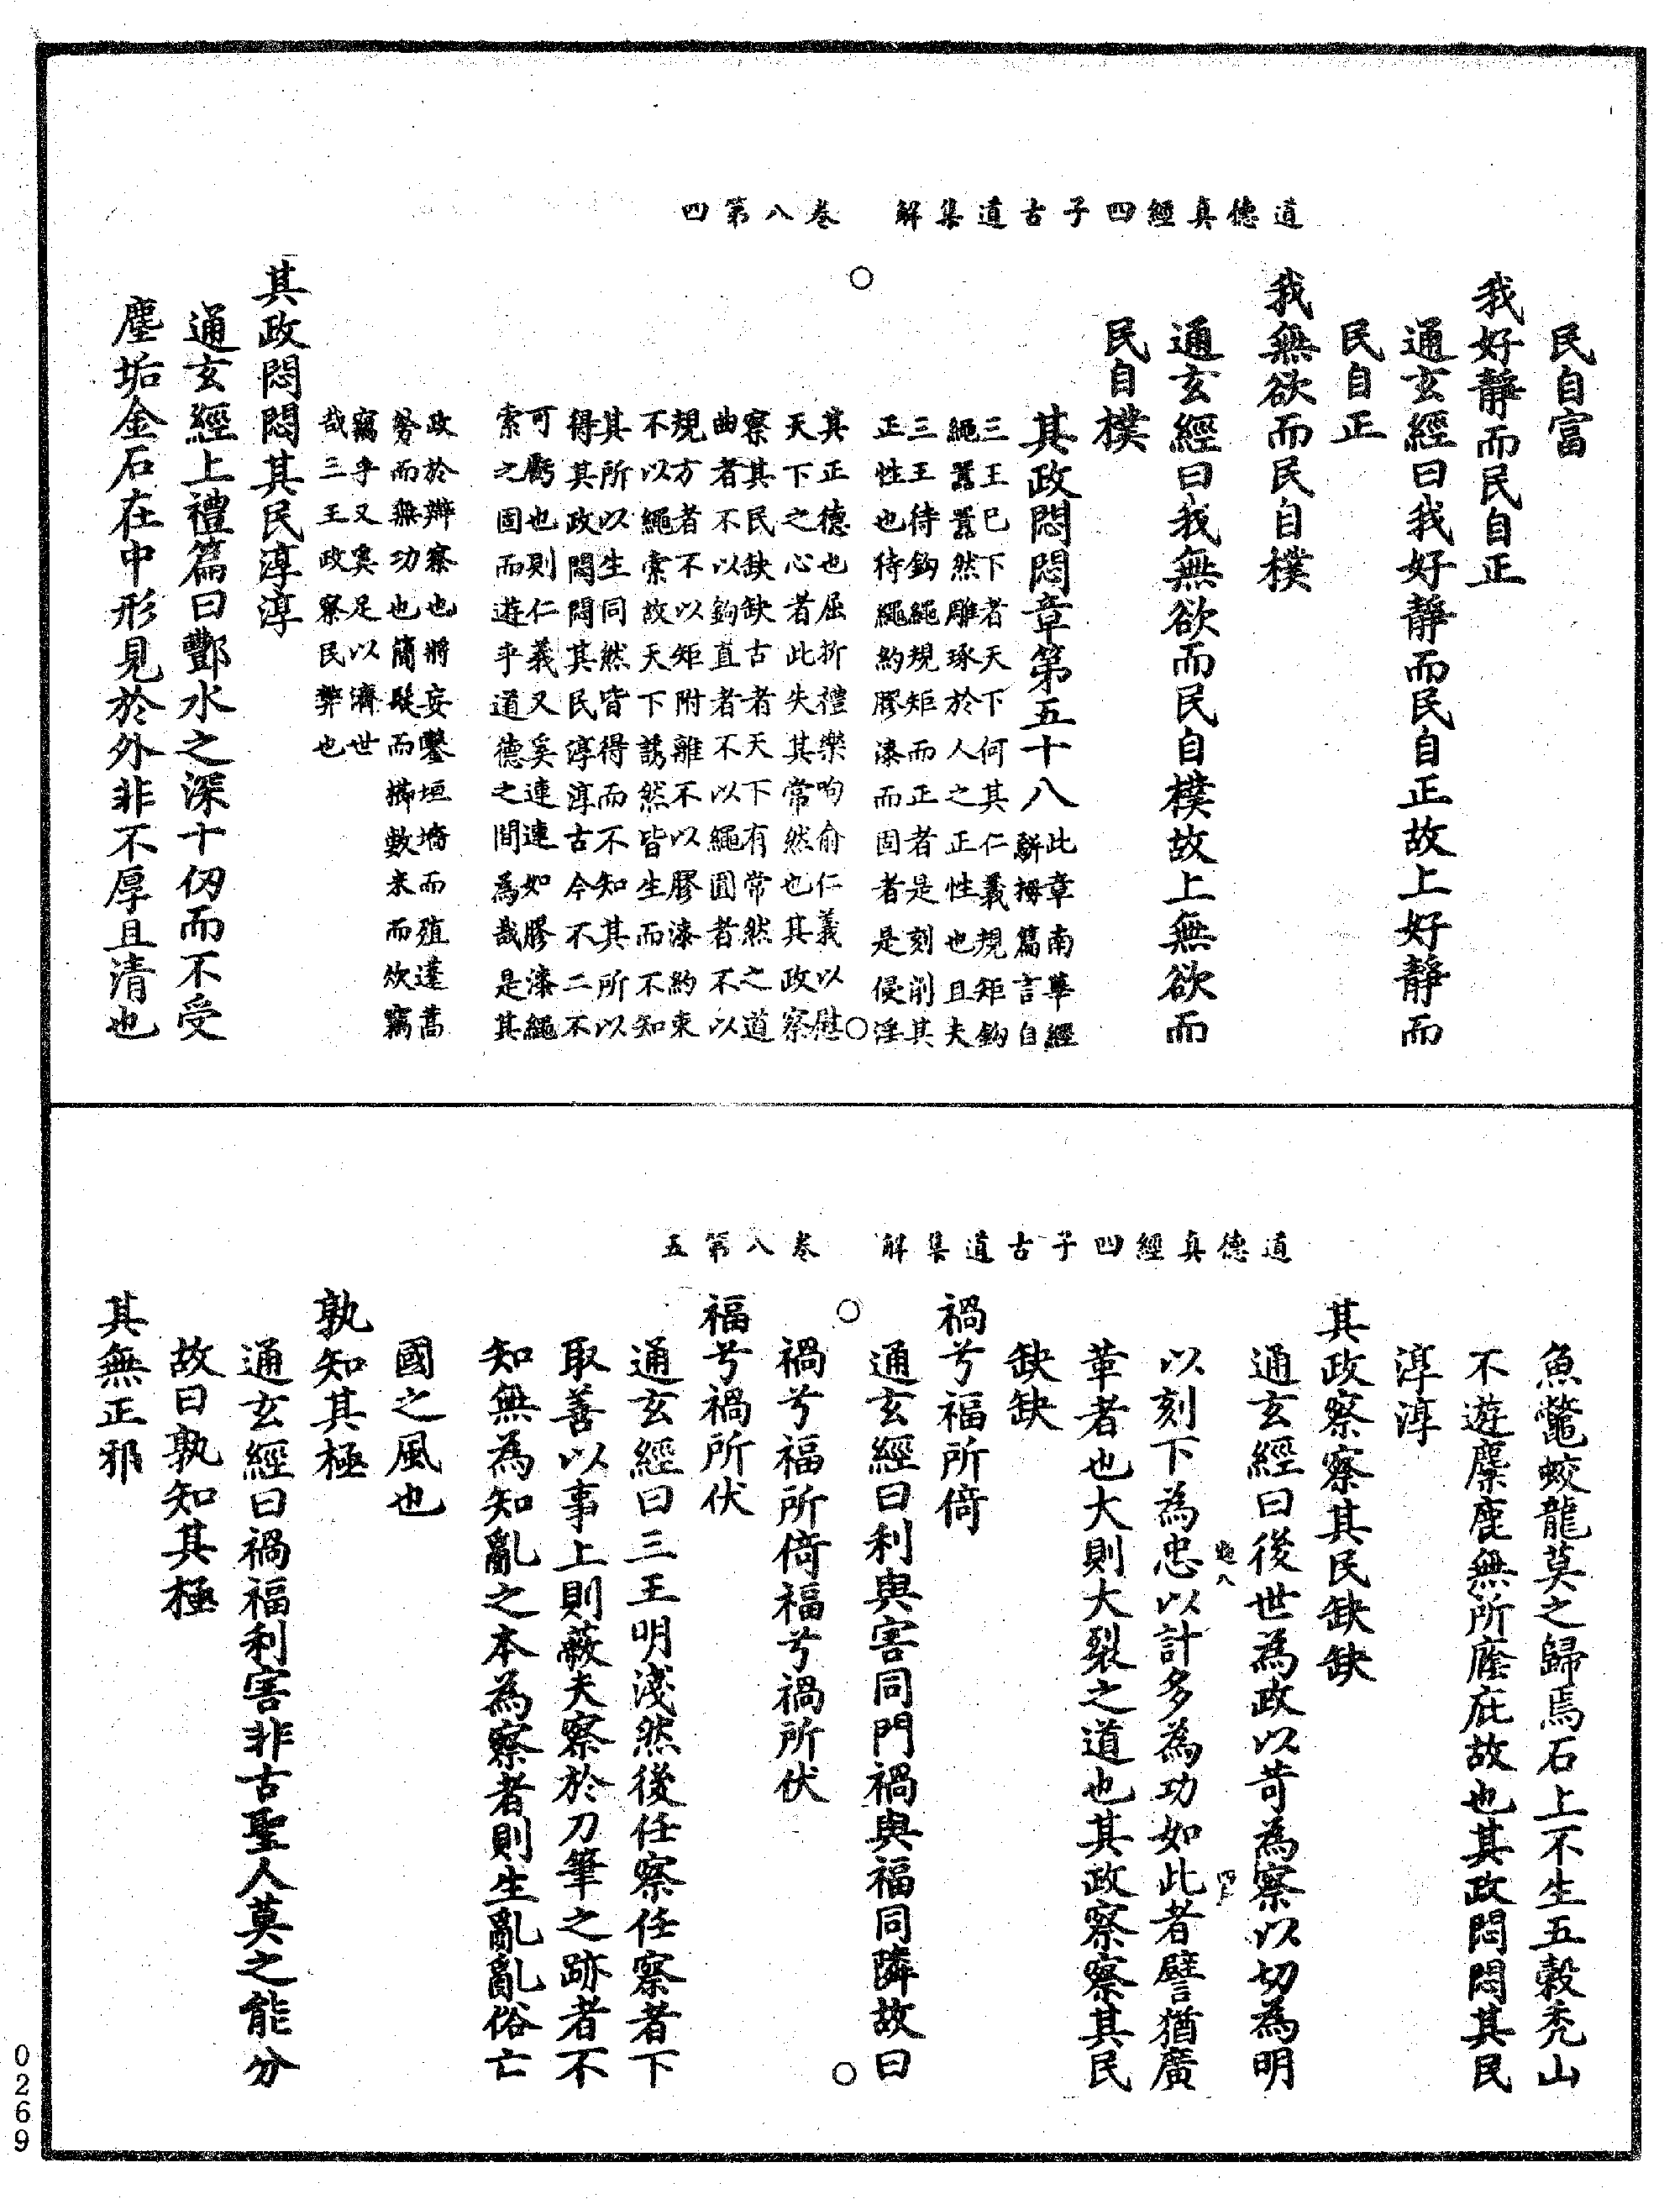 道德真經四子古道集解　卷八第四
民自富
我好靜而民自正
通玄經曰我好靜而民自正故上好靜而
民自正
我無欲而民自樸
通玄經曰我無欲而民自樸故上無欲而
民自樸
其政悶悶章第五十八
此章南華經
駢拇篇言自
三王已下者天下何其仁義規矩鈎
繩囂囂然雕琢於人之正性也且夫
三王待鈎繩規矩而正者是刻削其
正性也待繩約膠漆而固者是侵淫
其正德也屈折禮樂呴俞仁義以慰
天下之心者此失其常然也其政察
察其民缺缺古者天下有常然之道
曲者不以鈎直者不以繩圓者不以
規方者不以矩附離不以膠漆約束
不以繩索故天下誘然皆生而不知
其所以生同然皆得而不知其所以
得其政悶悶其民淳淳古今不二不
可虧也則仁義又奚連連如膠漆繩
索之固而遊乎道德之間為哉是其
政於辯察也將妄鑿垣墻而殖蓬蒿
勞而無功也簡髮而櫛數米而炊竊
竊乎又奚足以濟世
哉三王政察民弊也
其政悶悶其民淳淳
通玄經上禮篇曰酆水之深十仞而不受
塵垢金石在中形見於外非不厚且清也
道德真經四子古道集解　卷八第五
魚鼈蛟龍莫之歸焉石上不生五穀禿山
不遊麋鹿無所廕庇故也其政悶悶其民
淳淳
其政察察其民缺缺
通玄經曰後世為政以苛為察以切為明
以刻下為忠以計多為功如此者譬猶廣
革者也大則大裂之道也其政察察其民
缺缺
禍兮福所倚
通玄經曰利與害同門禍與福同隣故曰
禍兮福所倚福兮禍所伏
福兮禍所伏
通玄經曰三王明淺然後任察任察者下
取善以事上則蔽夫察於刀筆之跡者不
知無為知亂之本為察者則生亂亂俗亡
國之風也
孰知其極
通玄經曰禍福利害非古聖人莫之能分
故曰孰知其極
其無正邪
0269